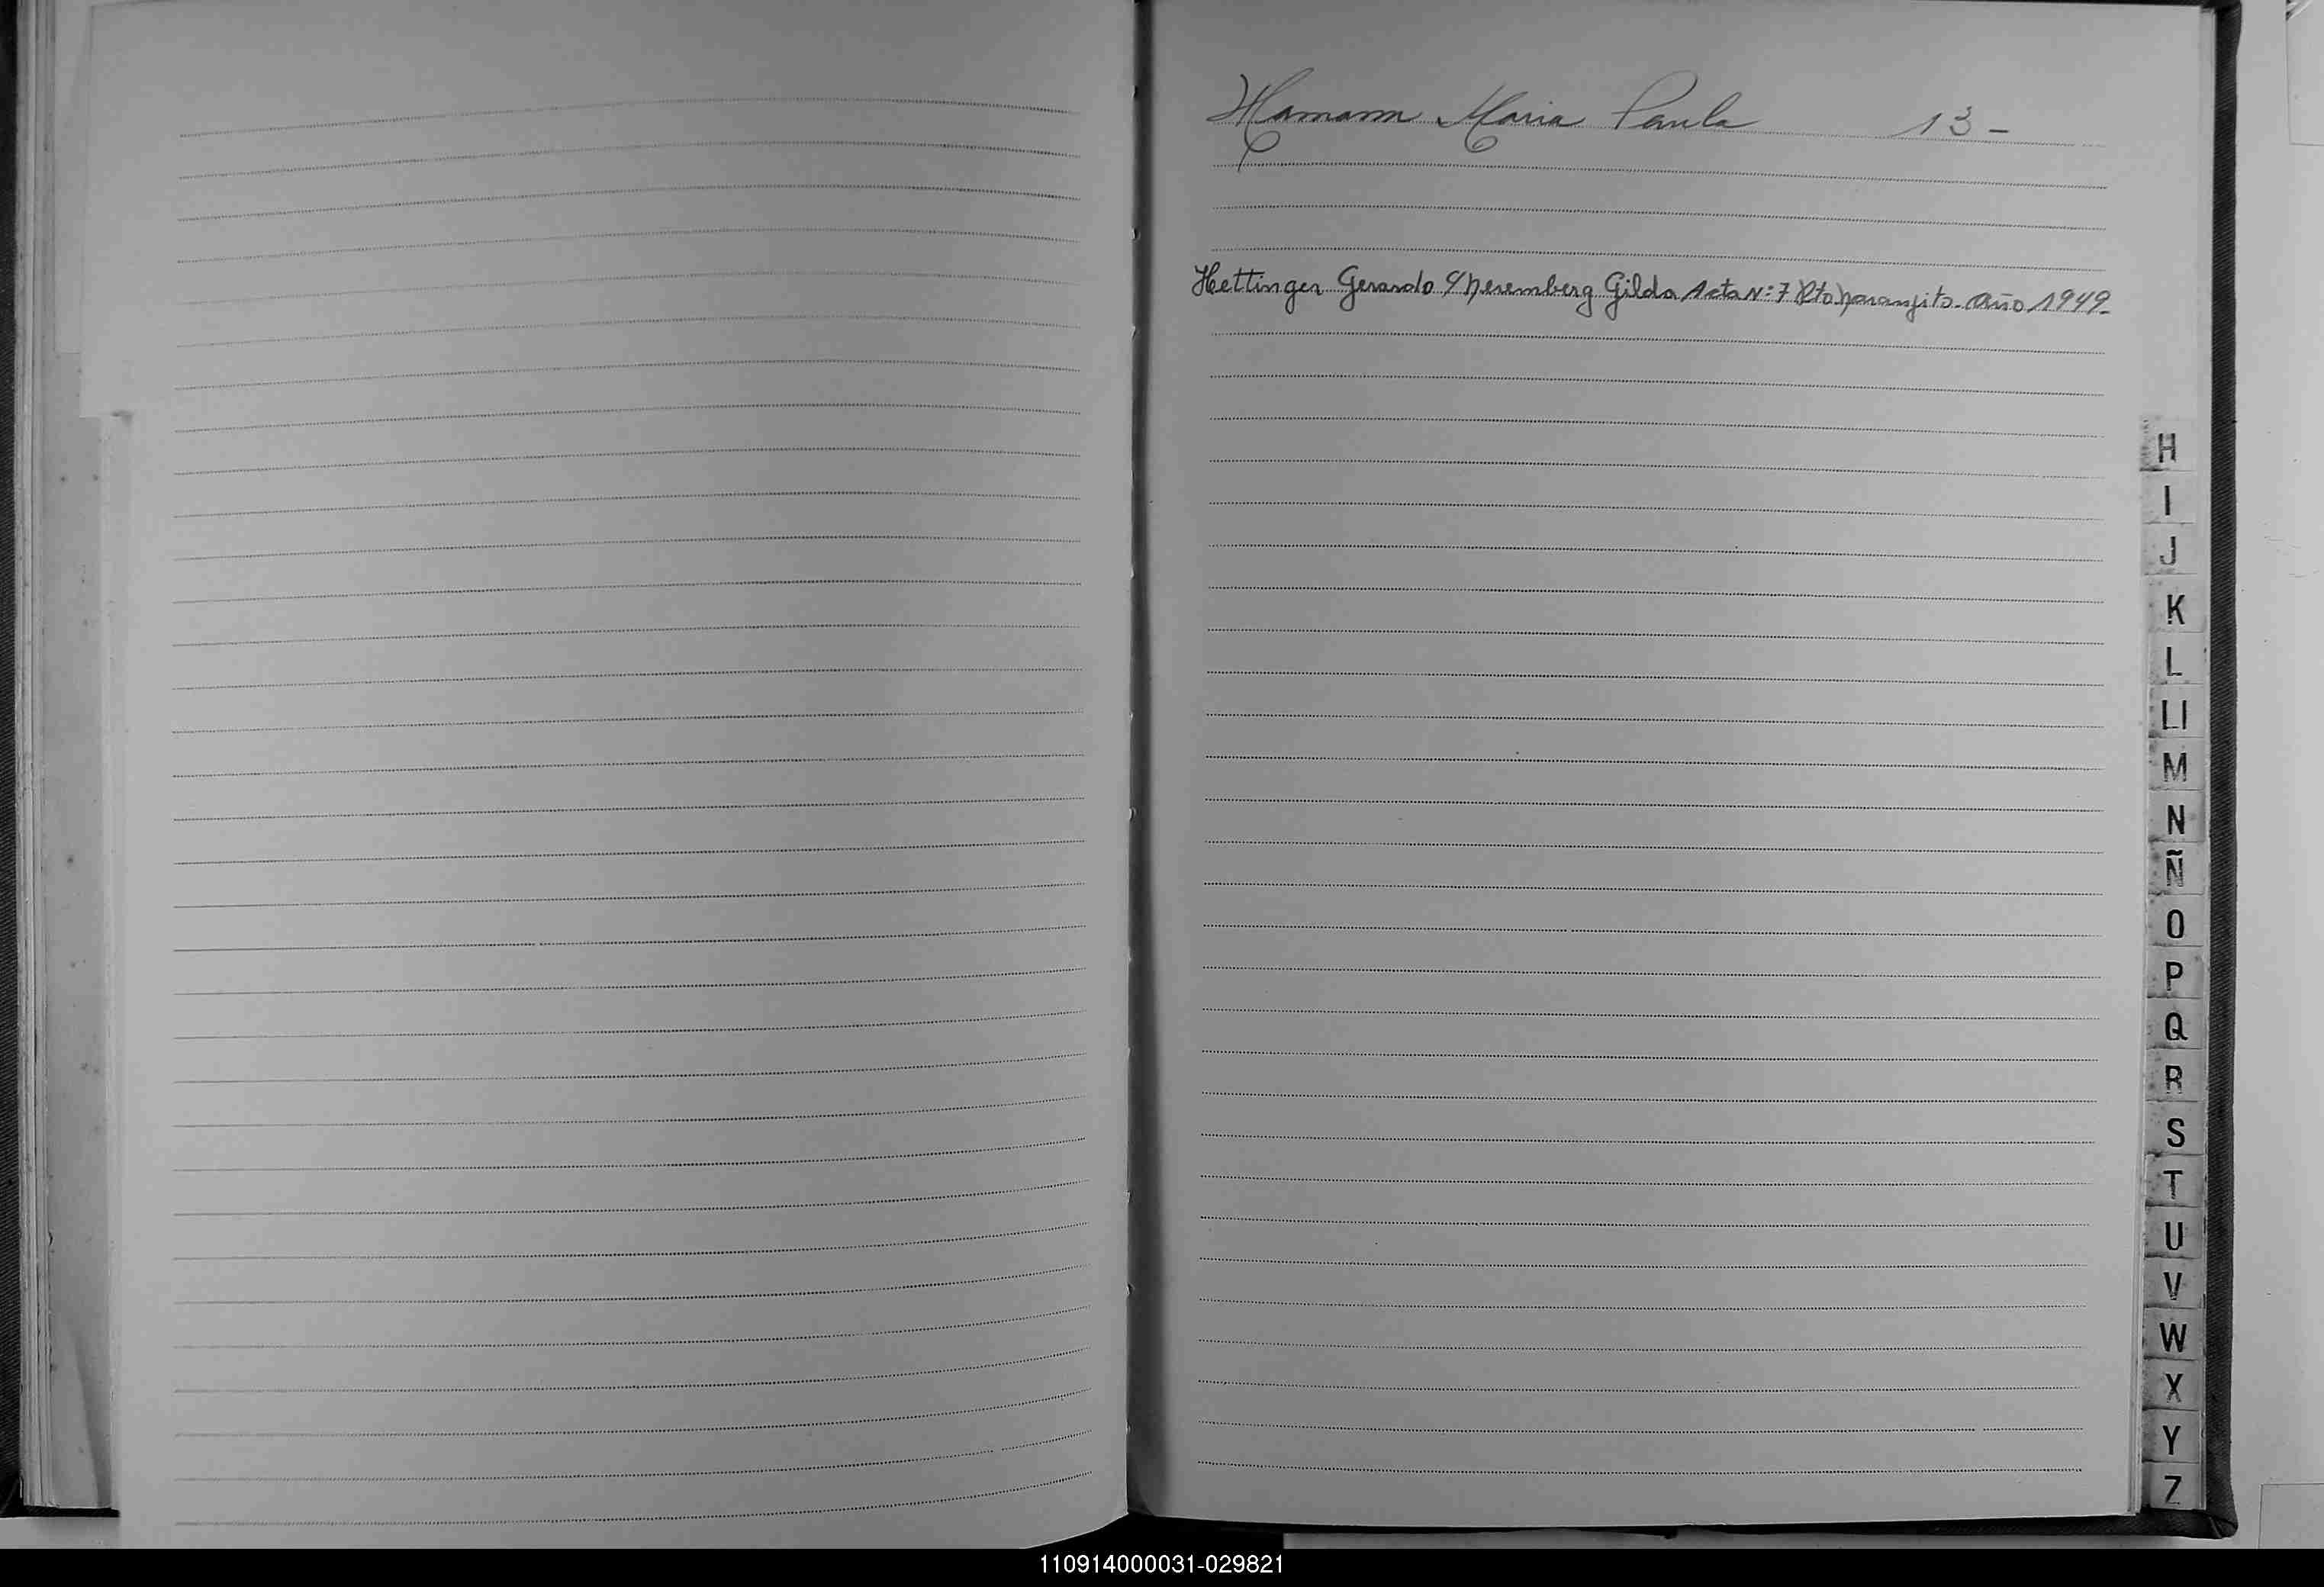 Hamann Maria Paula 13 -
Hettinger Gerardo c/ Neremberg Gilda Acta Nº: 7 Rto Naranjito. Año 1949-
H
I
J
K
L
Ll
M
N
Ñ
O
P
Q
R
S
T
U
V
W
X
Y
Z
110914000031-029821